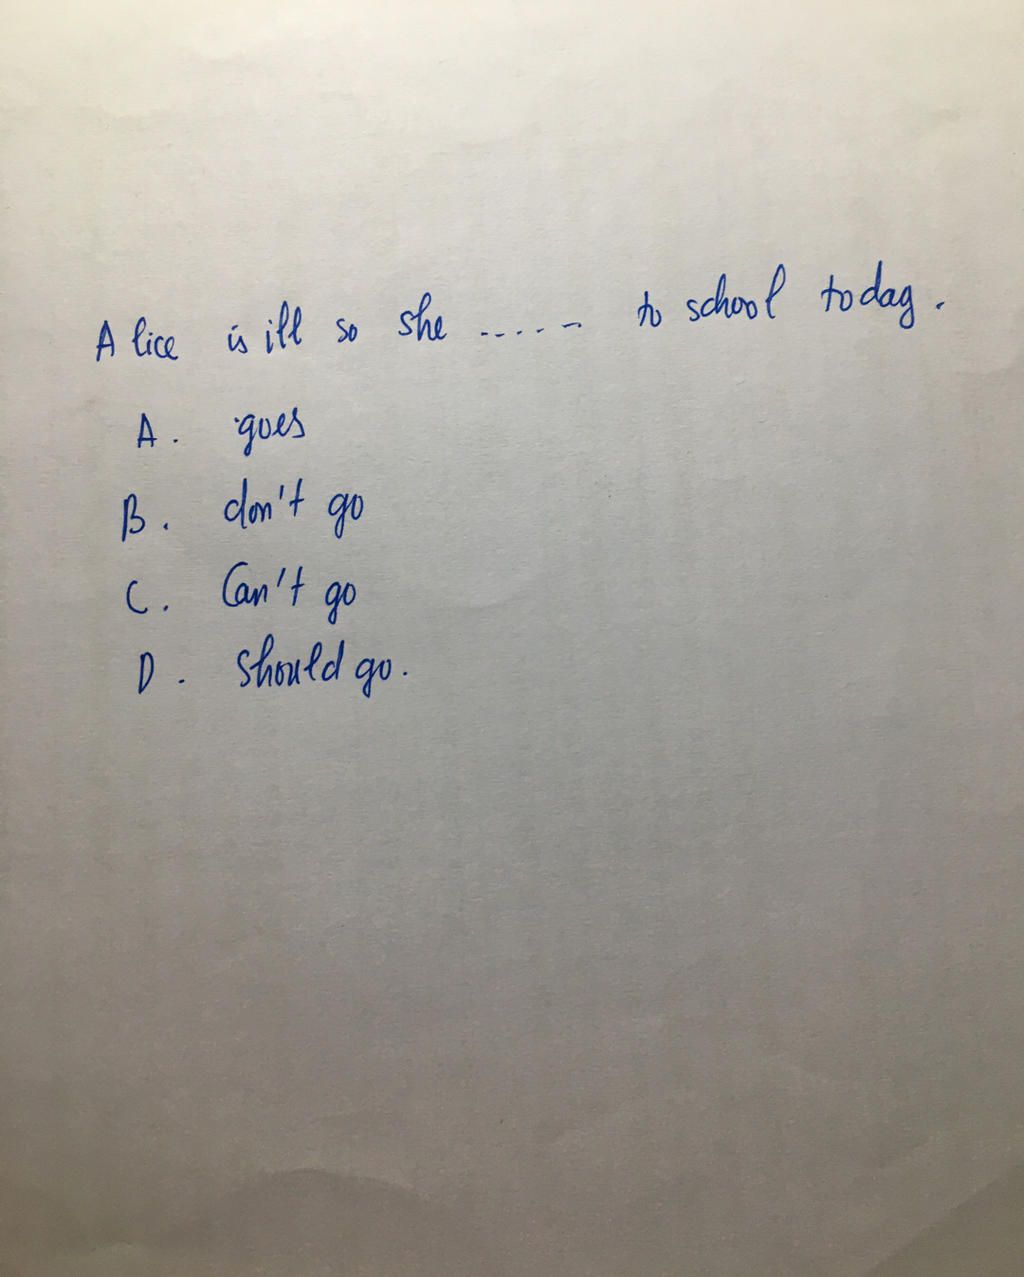 Alice is ill so she ...... to school today.
A. goes
B. don't go
C. Can't go
D. should go.